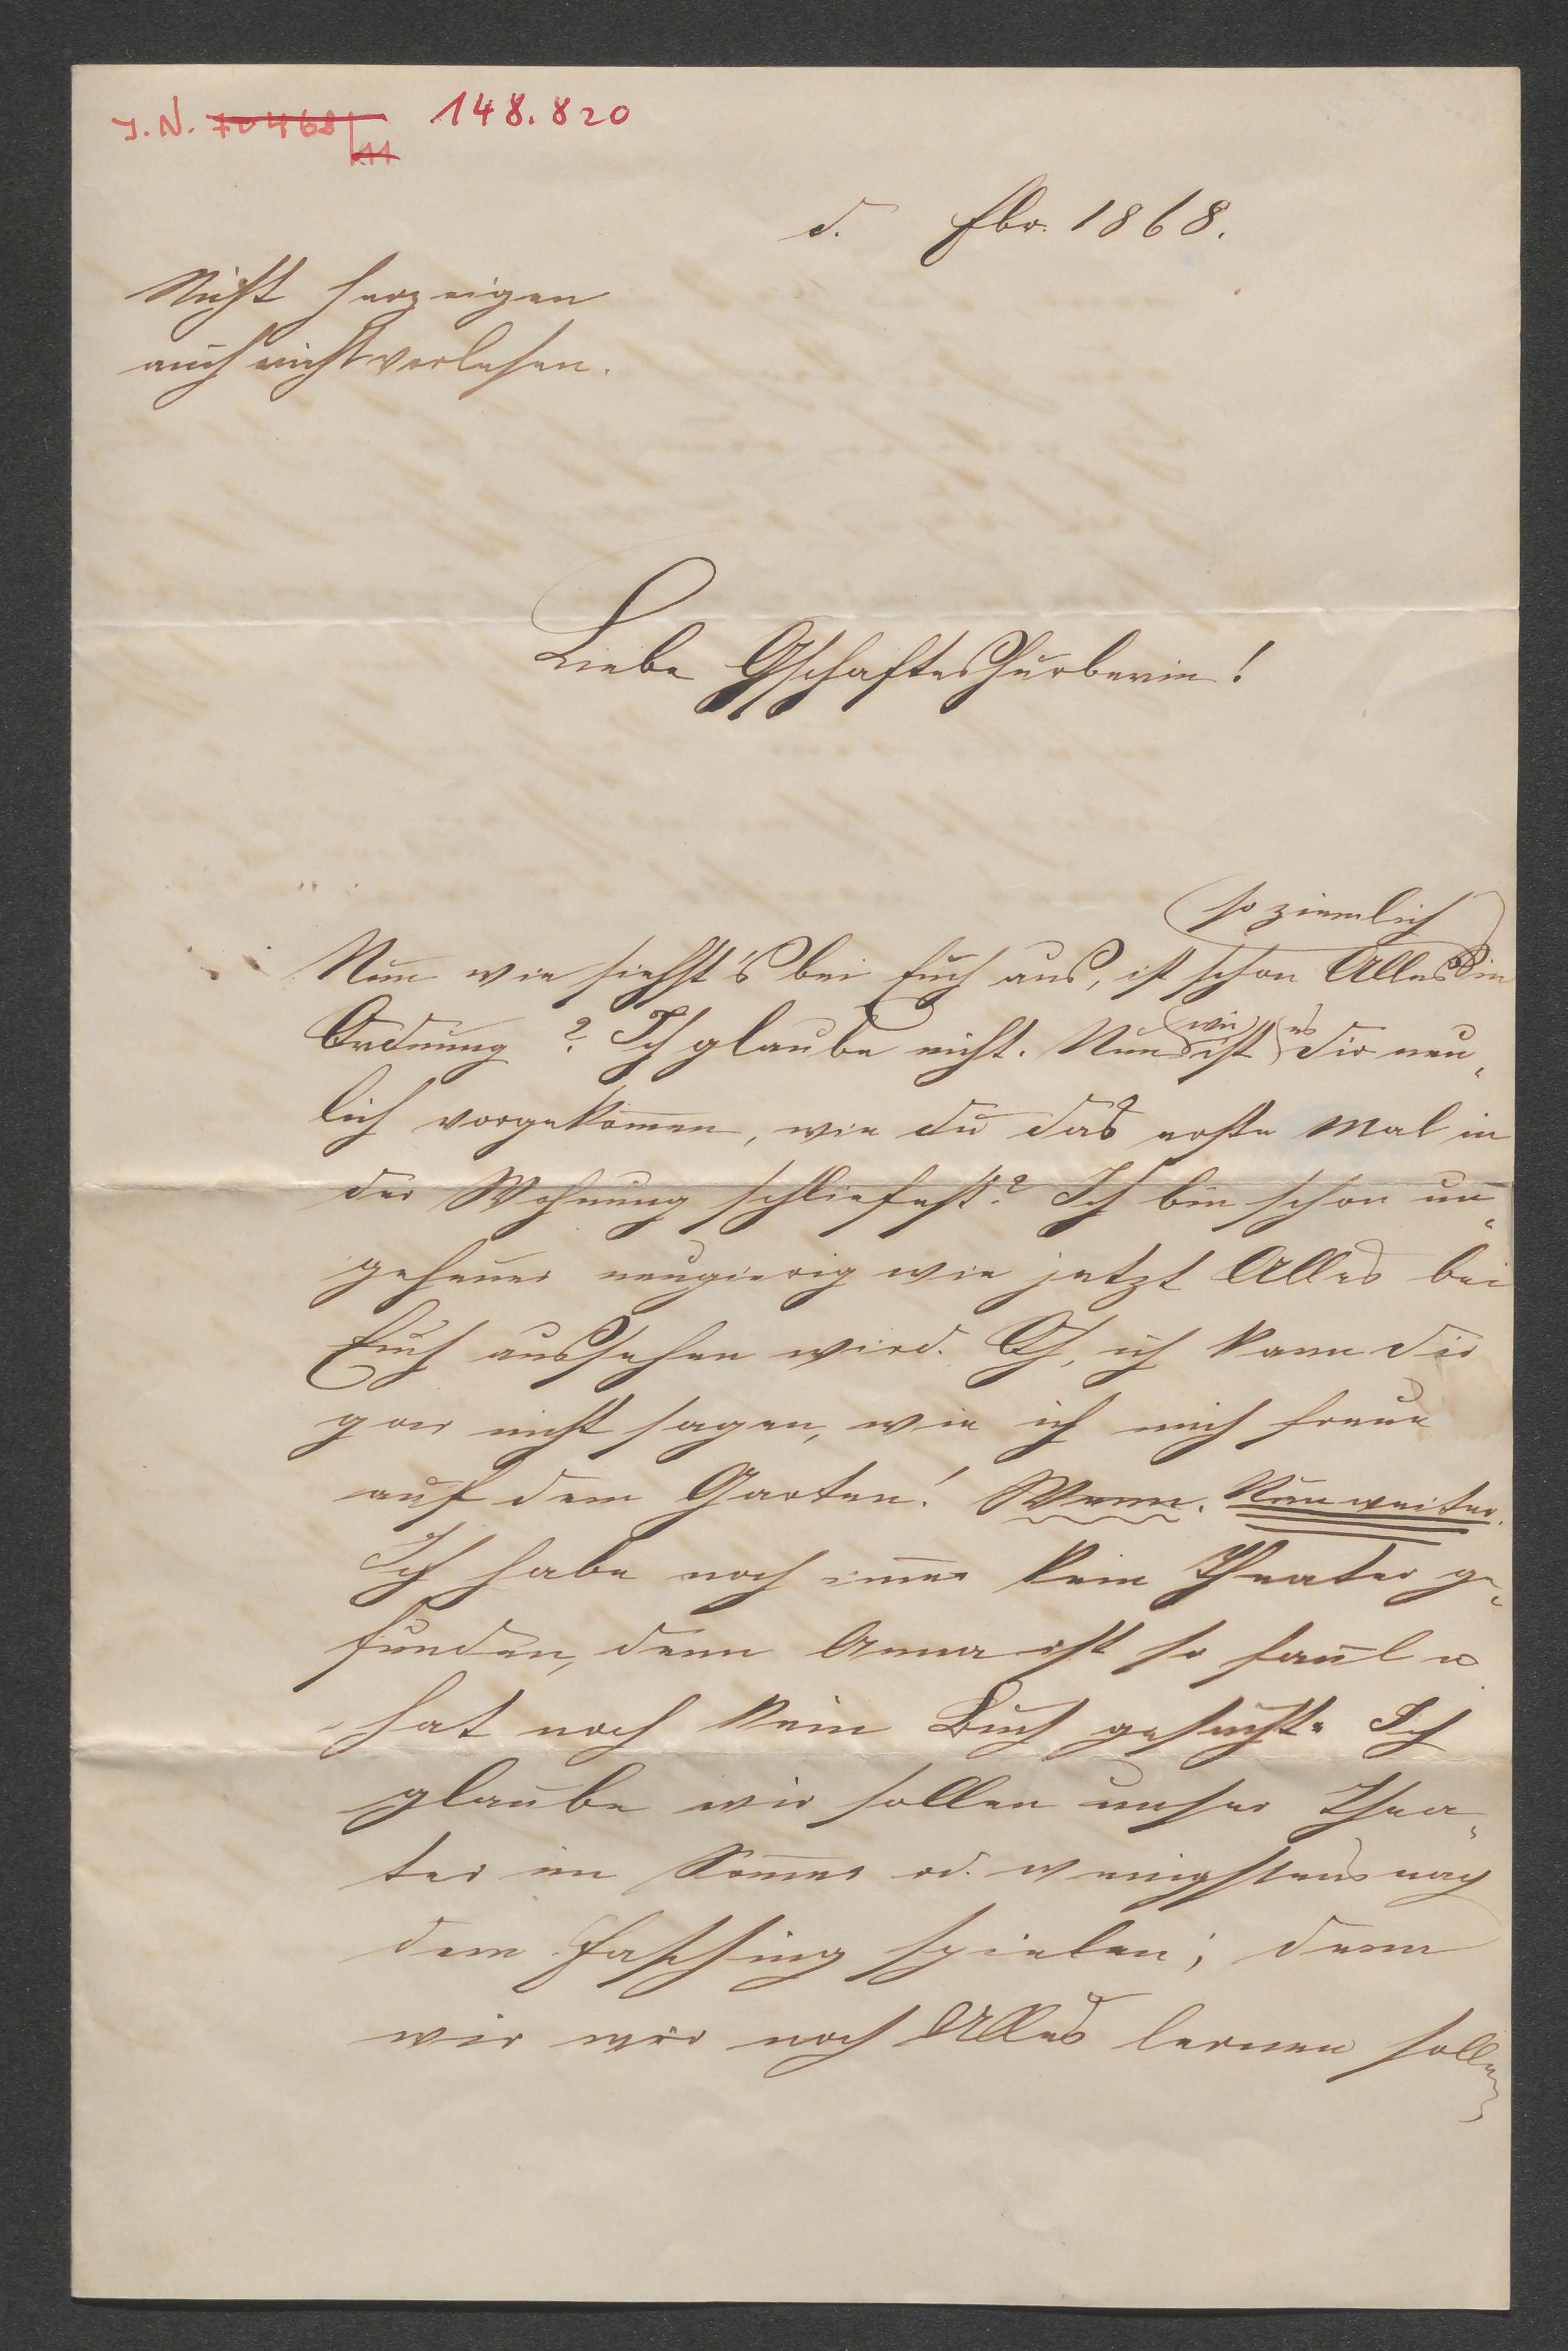 J.N. 70468/11 148.820
d. Fbr. 1868.
Nicht herzeigen
auch nicht vorlesen.
Liebe Gschafteshuberin!
so ziemlich
Nun wie siehst's bei Euch aus, ist schon Alles in
Ordnung? Ich glaube nicht. Nun wie ist es dir neu„
lich vorgekommen, wie du das erste Mal in
der Wohnung schliefest? Ich bin schon un„
geheuer neugierig wie jetzt Alles bei
Euch aussehen wird. Oh, ich kann dir
gar nicht sagen, wie ich mich freue
auf dem Garten! Wenn. Nun weiter.
Ich habe noch immer kein Theater ge„
funden, denn Anna ist so faul u
hat noch kein Buch gesucht. Ich
glaube wir sollen unser Thea„
ter im Sommer od. wenigstens nach
dem Fasching spielen; denn
wir noch Alles lernen sollen